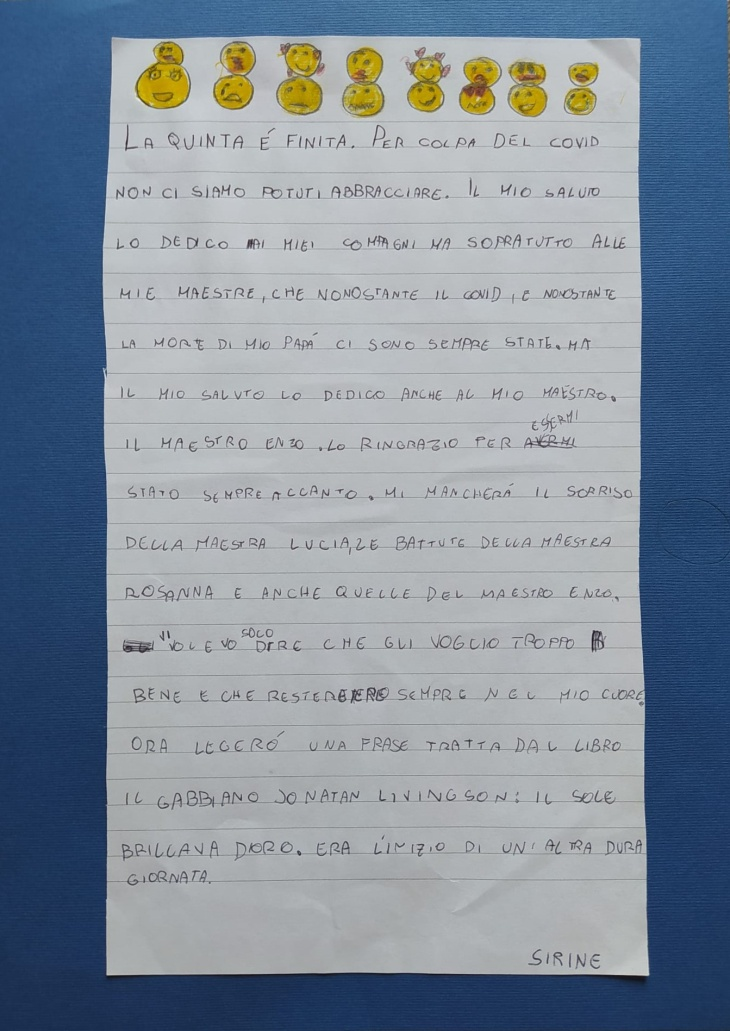 LA QUINTA É FINITA. PER COLPA DEL COVID
NON CI SIAMO POTUTI ABBRACCIARE. IL MIO SALUTO
LO DEDICO AI MIEI COMPAGNI MA SOPRATUTTO ALLE
MIE MAESTRE, CHE NONOSTANTE IL COVID, E NONOSTANTE
LA MORTE DI MIO PAPÁ CI SONO SEMPRE STATE. MA
IL MIO SALUTO LO DEDICO ANCHE AL MIO MAESTRO.
IL MAESTRO ENZO. LO RINGRAZIO PER ESSERMI
STATO SEMPRE ACCANTO. MI MANCHERÁ IL SORRISO
DELLA MAESTRA LUCIA, LE BATTUTE DELLA MAESTRA
ROSANNA E ANCHE QUELLE DEL MAESTRO ENZO.
VI VOLEVO SOLO DIRE CHE GLI VOGLIO TROPPO
BENE E CHE SEMPRE NEL MIO CUORE.
ORA LEGERÓ UNA FRASE TRATTA DAL LIBRO
IL GABBIANO JONATAN LIVINGSON: IL SOLE
BRILLAVA D'ORO. ERA L'INIZIO DI UN'ALTRA DURA
GIORNATA.
SIRINE